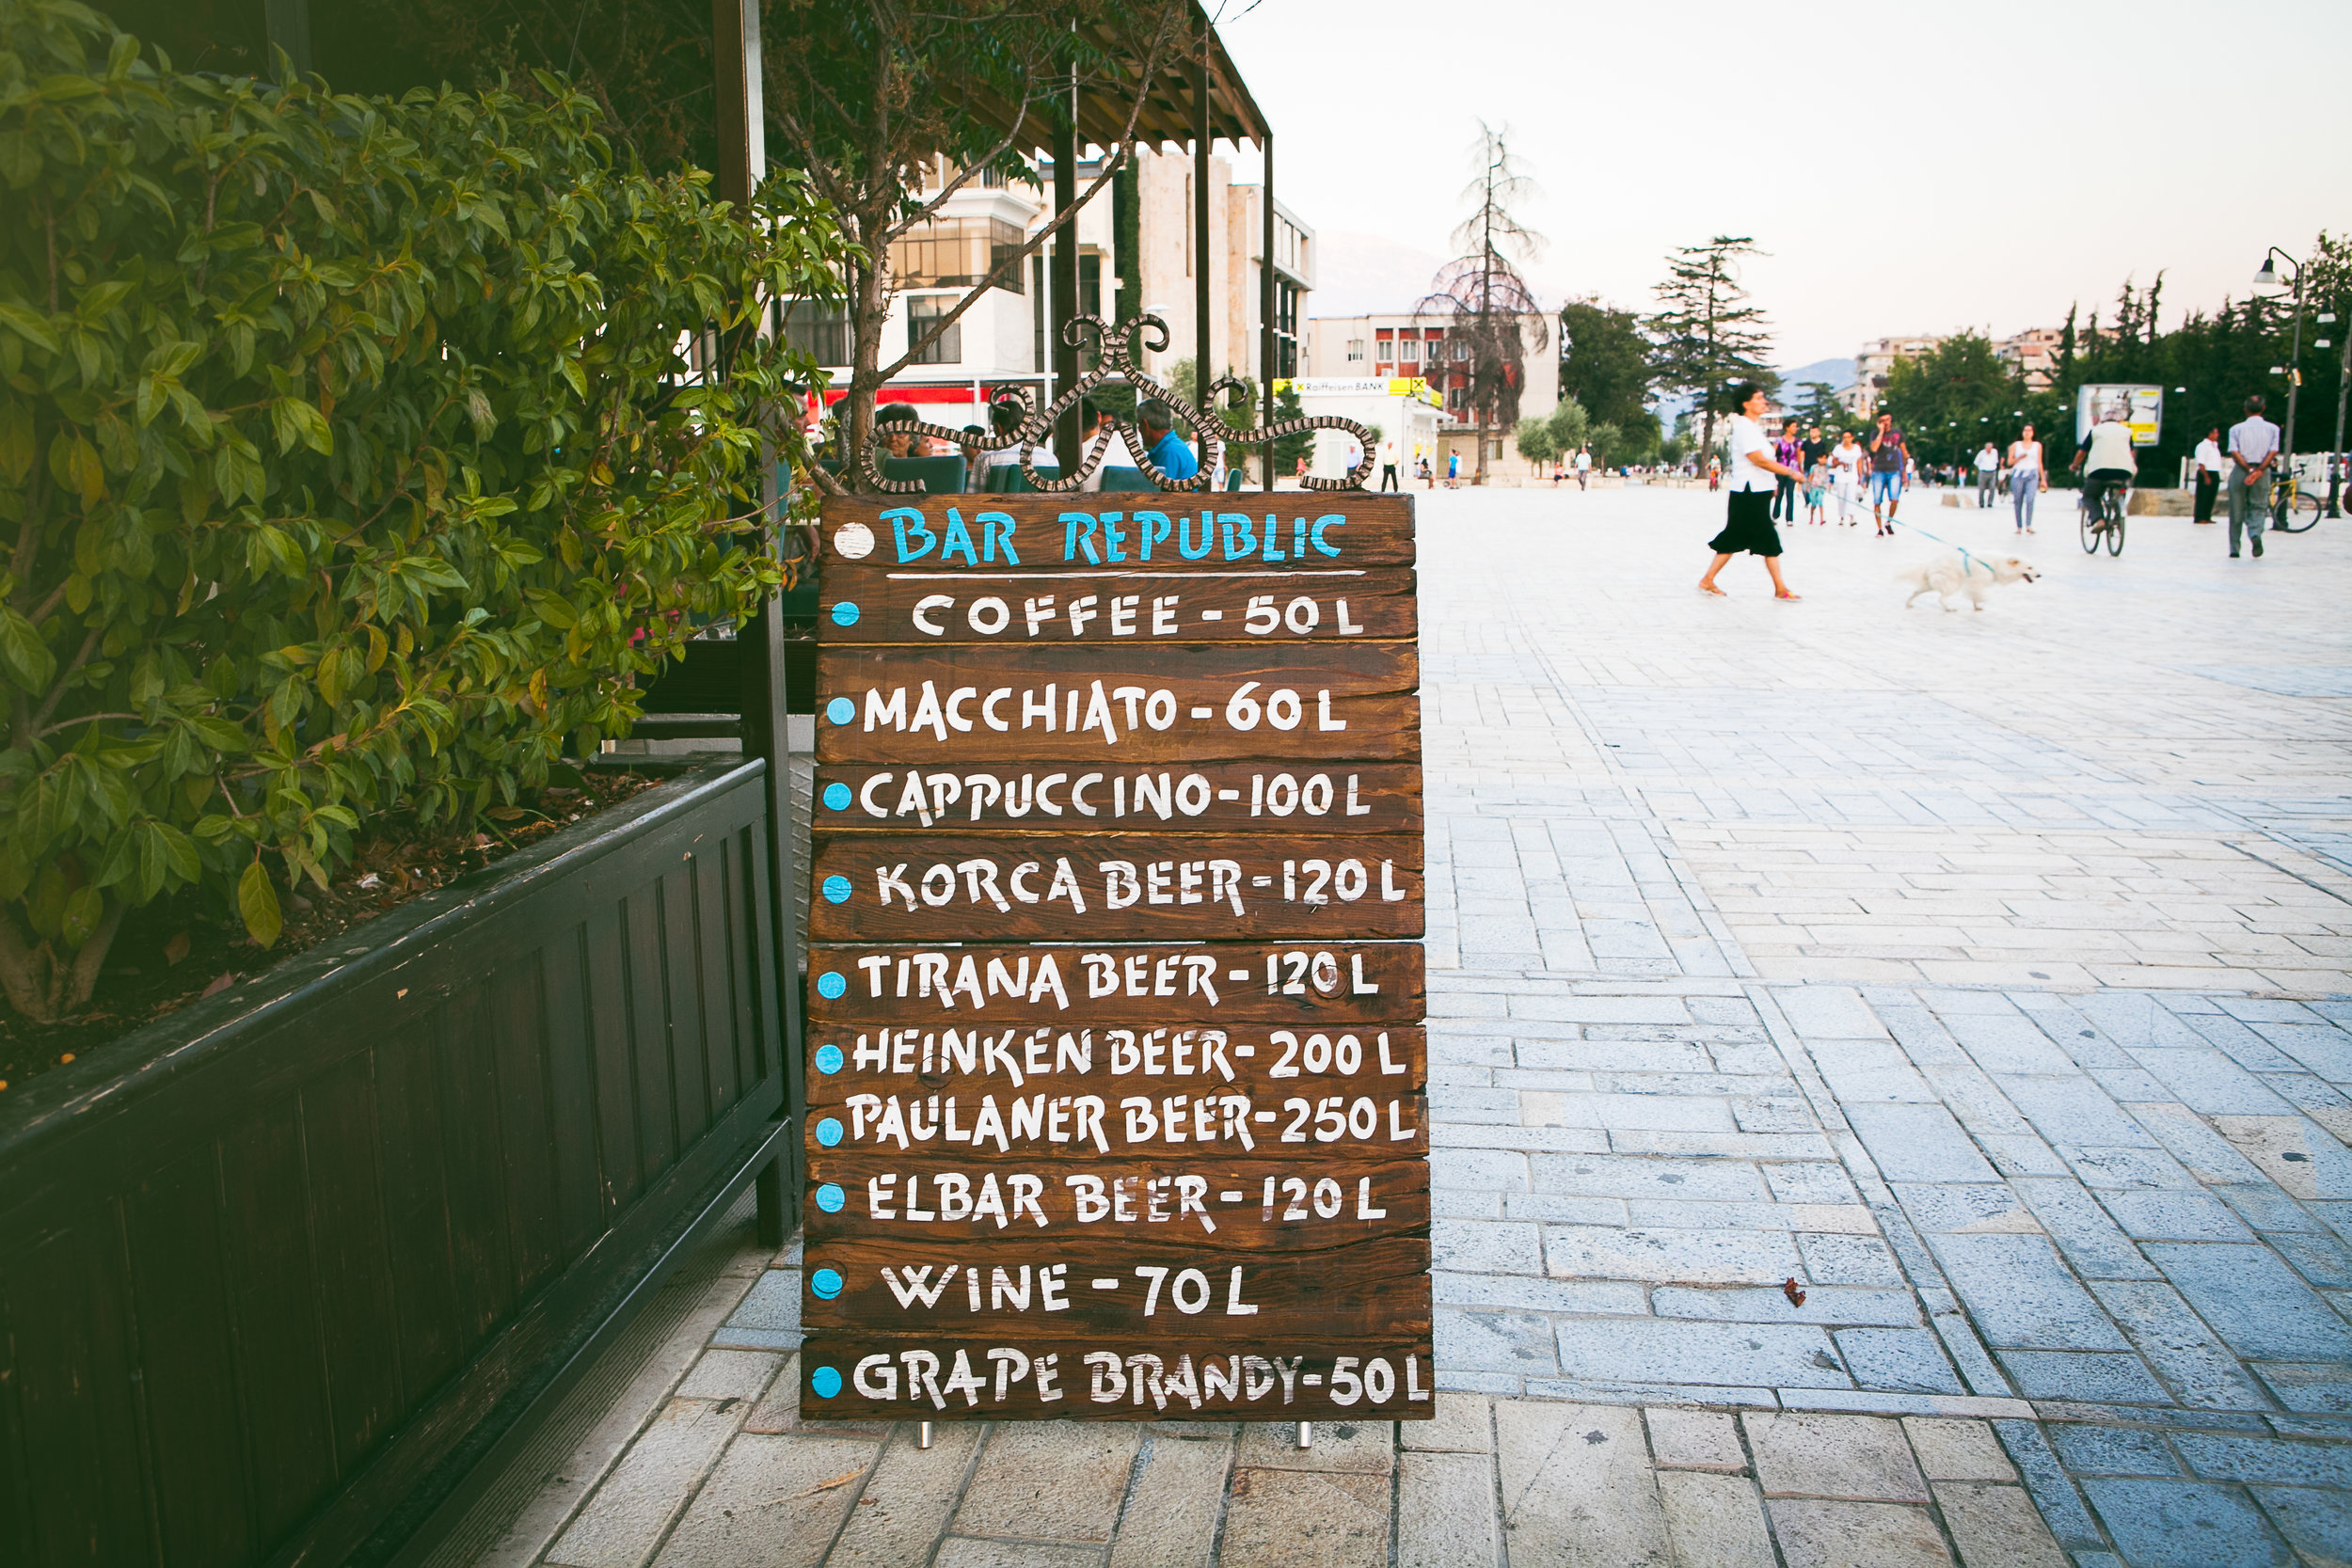 BAR REPUBLIC
COFFEE - 50 L
MACCHIATO - 60 L
CAPPUCCINO - 100 L
KORCA BEER - 120 L
TIRANA BEER - 120 L
HEINKEN BEER - 200 L
PAULANER BEER - 250 L
ELBAR BEER - 120 L
WINE - 70 L
GRAPE BRANDY - 50 L
Raiffeisen BANK